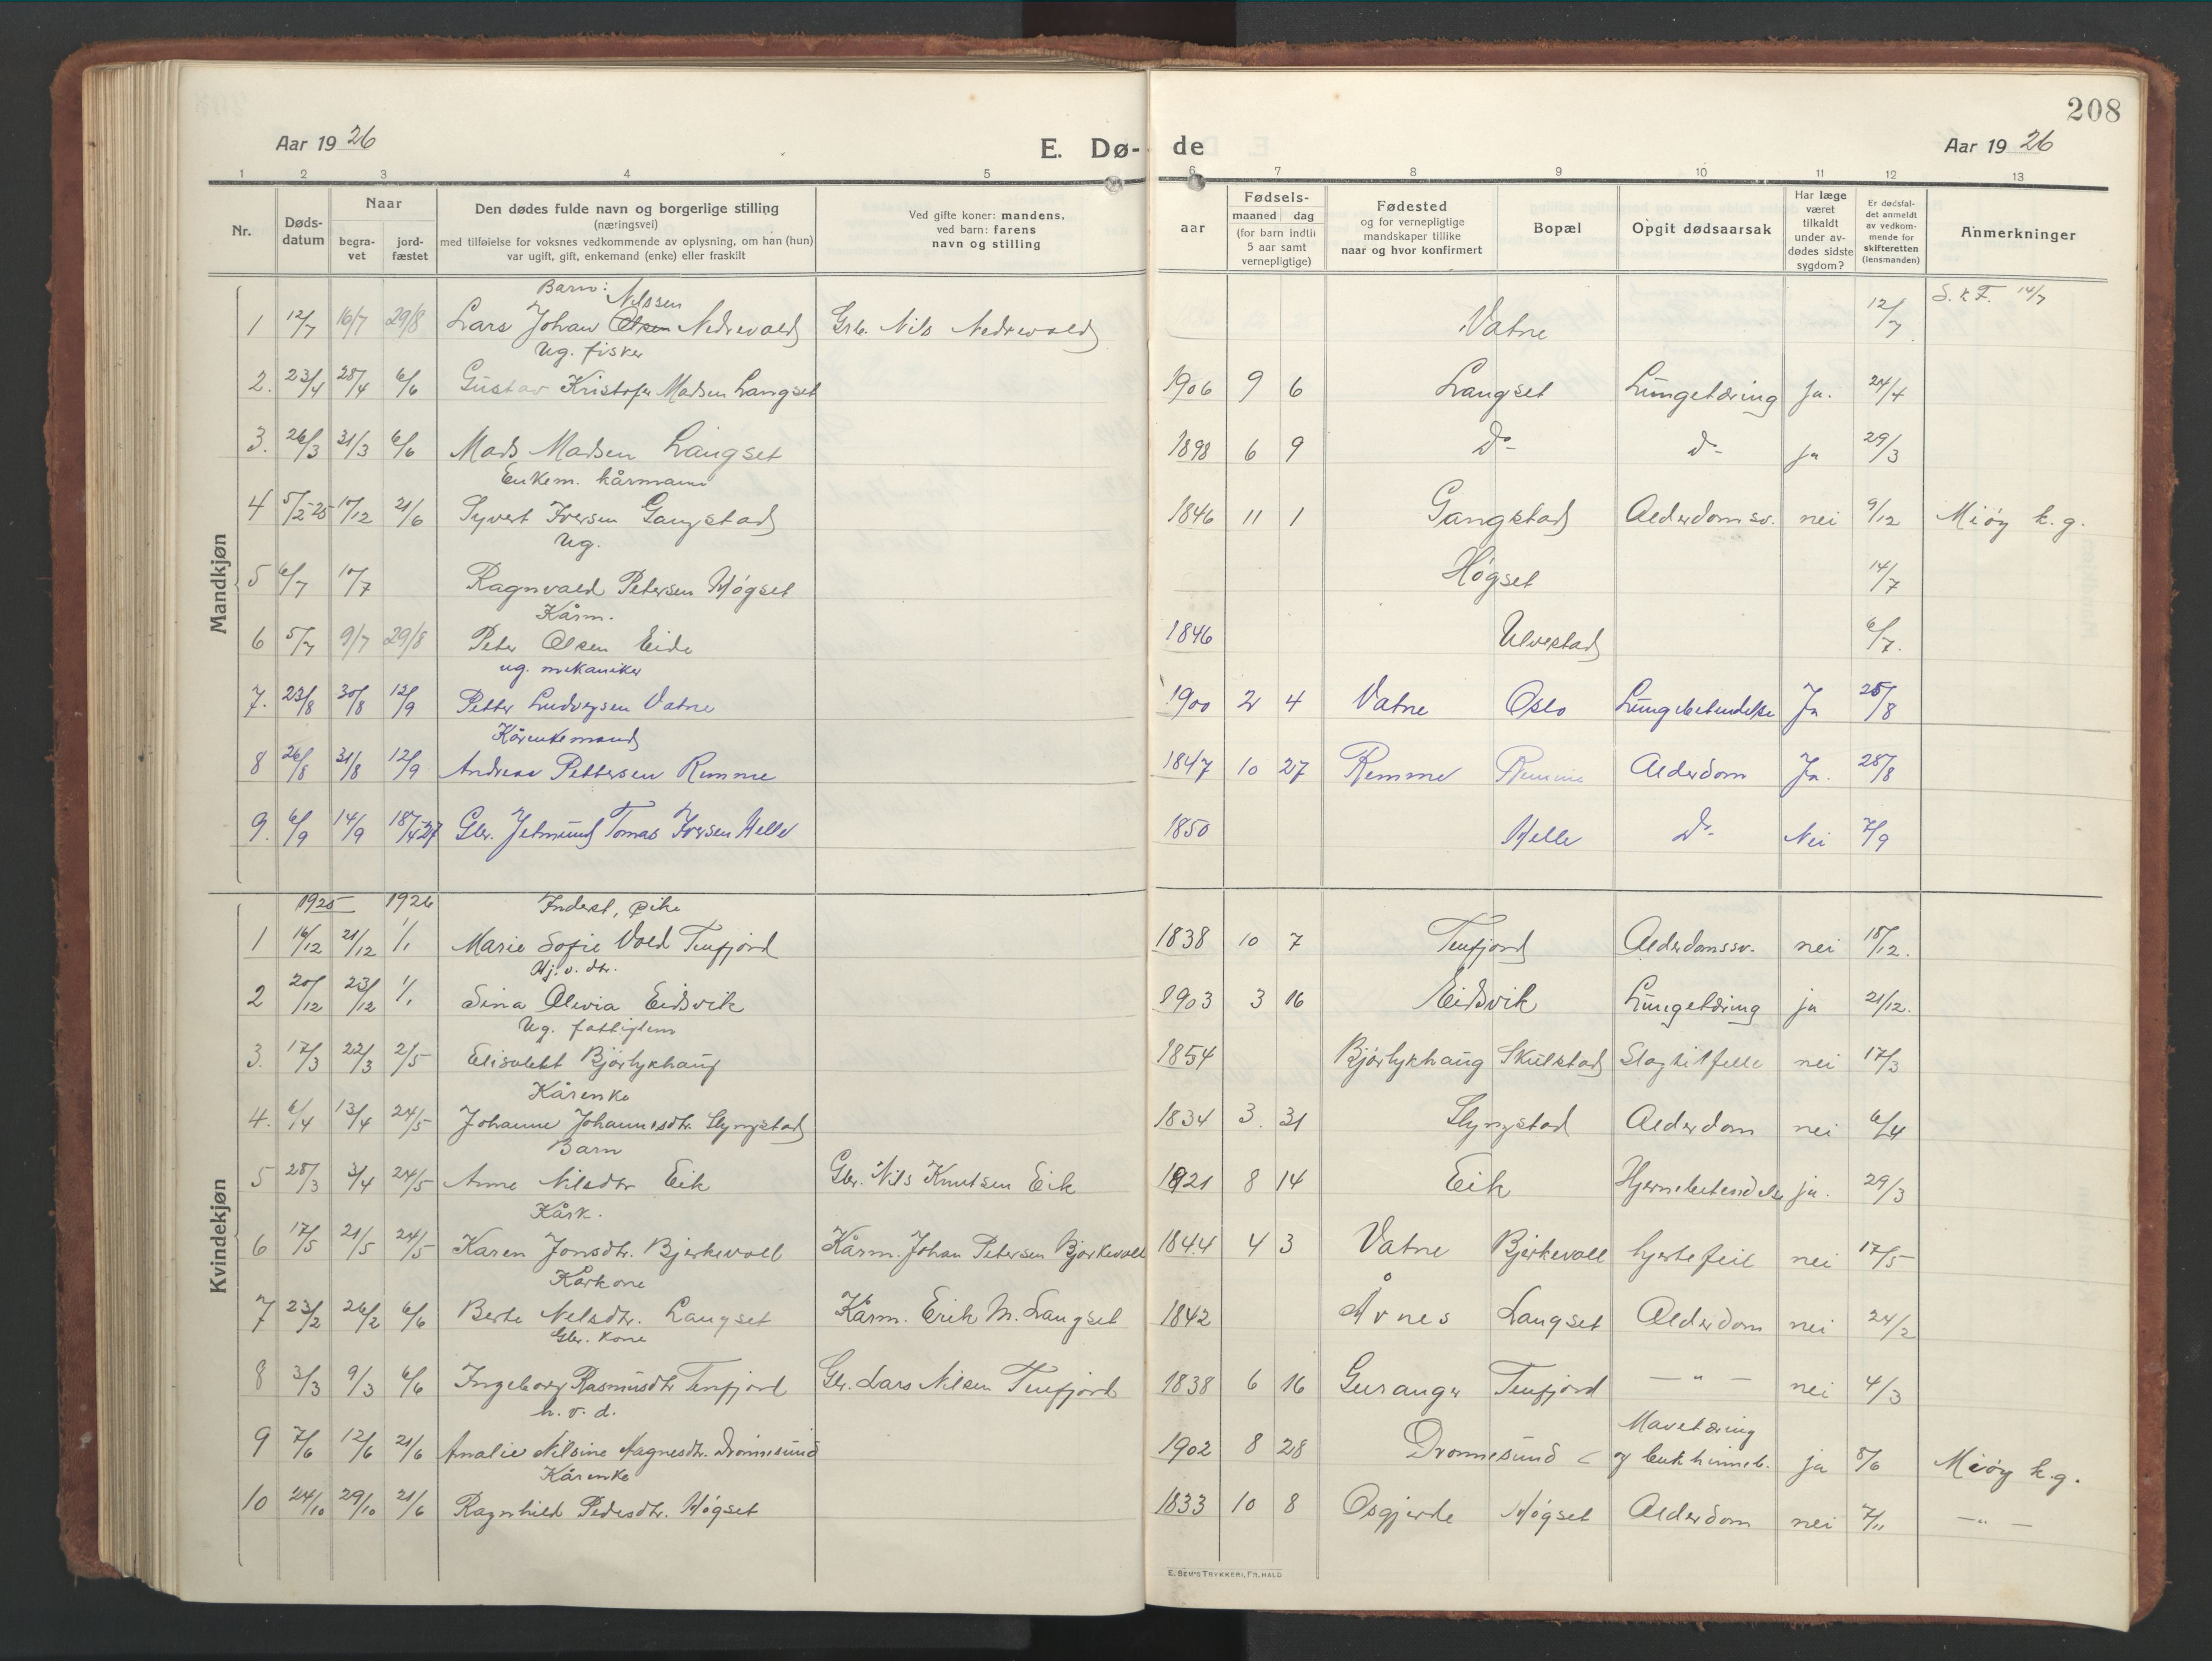 208
Aar 1926 E. Dø- de Aar 1926
1 2 3 4 5 6 7 8 9 10 11 12 13
Nr.
Døds-
datum
Naar
begra-
vet
jord-
fæstet
Den dødes fulde navn og borgerlige stilling
(næringsvei)
med tilføielse for voksnes vedkommende av oplysning, om han (hun)
var ugift, gift, enkemand (enke) eller fraskilt
Ved gifte koner: mandens,
ved barn: farens
navn og stilling
aar
Fødsels-
maaned dag
(for barn indtil
5 aar samt
vernepligtige)
Fødested
og for vernepligtige
mandskaper tillike
naar og hvor konfirmert
Bopæl
Opgit dødsaarsak
Har læge
været
tilkaldt
under av-
dødes sidste
sygdom?
Er dødsfal-
det anmeldt
av vedkom-
mende for
skifteretten
(lensmanden)
Anmerkninger
Mandkjøn
Barn: Nilssen
1 12/7 16/7 29/8 Lars Johan Olsen Nedrevold Grb. Nils Nedrevold Vatne 12/7 S. k F. 14/7
Ug. fisker
2. 23/4 28/4 6/6 Gustav Kristofer Madsen Langset 1906 9 6 Langset Lungetæring ja. 24/4
3. 26/3 31/3 6/6 Mads Madsen Langset 1898 6 9 Do- Do- ja 29/3
Enkem. kårmann
4 5/12-25 10/12 21/6 Syvert Iversen Gangstad 1846 11 1 Gangstad Alderdomssv. nei 9/12 Miöy k.g.
Ug.
5 6/7 10/7 Ragnvald Petersen Høgset Høgset 14/7
Kårm.
6 5/7 9/7 29/8 Peter Olsen Eide 1846 Ulvestad 6/7.
ug. mekaniker
7. 23/8 30/8 12/9 Petter Ludvigsen Vatne 1900 2 4 Vatne Oslo Lungebetendelse Ja 25/8
Kårenkemand
8 26/8 31/8 12/9 Andreas Pettersen Remme 1847 10 27 Remme Remme Alderdom Ja. 28/8
9. 6/9 14/9 18/4-27 Gbr. Jetmund Tomas Iversen Helle 1850 Helle Do- Nei 7/9
Kvindekjøn
1925 1926 Inderst, pike
1 16/12 21/12 1/1 Marie Sofie Vold Tenfjord 1838 10 7 Tenfjord Alderdomssv. nei 18/12.
Hj.v. dtr.
2 20/12 23/12 1/1 Sina Olivia Eidsvik 1903 3 16 Eidsvik Lungetæring ja 21/12.
Ug. fattiglem
3. 17/3 22/3 2/5 Elisabet Bjørlykhaug 1854 Bjørlykhaug Skulstad Slagtilfelle nei 17/3
Kårenke
4. 6/4 13/4 24/5 Johanne Johannesdtr. Slyngstad 1834 3. 31 Slyngstad Alderdom nei 6/4
Barn
5 28/3 3/4 24/5 Anne Nilsdtr Eik Gbr. Nils Knutsen Eik 1921 8 14 Eik Hjernebetendelse ja. 29/3
Kårk.
6 17/5 21/5 24/5 Karen Jonsdtr. Bjerkevoll Kårm. Johan Petersen Bjørkevoll 1844 4 3 Vatne Bjørkevoll hjertefeil nei 17/5
Kårkone
7 23/2 26/2 6/6 Berte Nilsdtr. Langset Kårm. Erik M. Langset 1842 Årnes Langset Alderdom nei 24/2
Gbr. kone
8 3/3 9/3 6/6 Ingeborg Rasmusdtr Tenfjord Gbr. Lars Nilsen Tenfjord 1838 6 16 Geiranger Tenfjord — " — nei 4/3
h. v. d. Mavetæring
9 7/6 12/6 21/6 Amalie Nilsine Magnesdtr. Dronnesund 1902 8 28 Dronnesund og bukhinneb. ja 8/6 Miöy k.g.
Kårenke
10 24/10 29/10 21/6 Ragnhild Pedersdtr. Høgset 1833 10 8 Osgjerde Høgset Alderdom nei 7/11 — " —
E. SEM'S TRYKKERI, FR.HALD